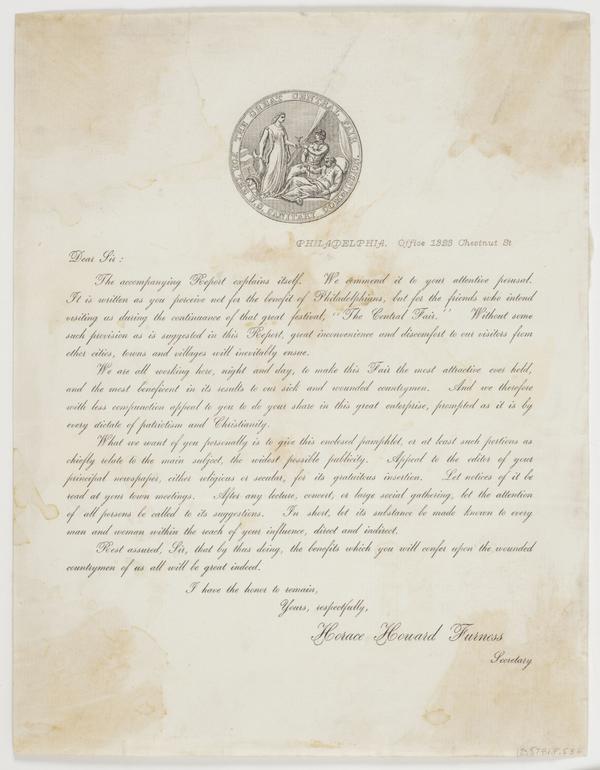 THE GREAT CENTRAL FAIR
FOR THE U.S. SANITARY COMMISSION.
PHILADELPHIA. Office 1323 Chestnut St
Dear Sir:
The accompanying Report explains itself. We commend it to your attentive perusal.
It is written as you perceive not for the benefit of Philadelphians, but for the friends who intend
visiting us during the continuance of that great festival, "The Central Fair." Without some
such provision as is suggested in this Report, great inconvenience and discomfort to our visitors from
other cities, towns and villages will inevitably ensue.
We are all working here, night and day, to make this Fair the most attractive ever held,
and the most beneficent in its results to our sick and wounded countrymen. And we therefore
with less compunction appeal to you to do your share in this great enterprise, prompted as it is by
every dictate of patriotism and Christianity.
What we want of you personally is to give this enclosed pamphlet, or at least such portions as
chiefly relate to the main subject, the widest possible publicity. Appeal to the editor of your
principal newspaper, either religious or secular, for its gratuitous insertion. Let notices of it be
read at your town meetings. After any lecture, concert, or large social gathering, let the attention
of all persons be called to its suggestions. In short, let its substance be made known to every
man and woman within the reach of your influence, direct and indirect.
Rest assured, Sir, that by thus doing, the benefits which you will confer upon the wounded
countrymen of us all will be great indeed.
I have the honor to remain,
Yours, respectfully,
Horace Howard Furness
Secretary